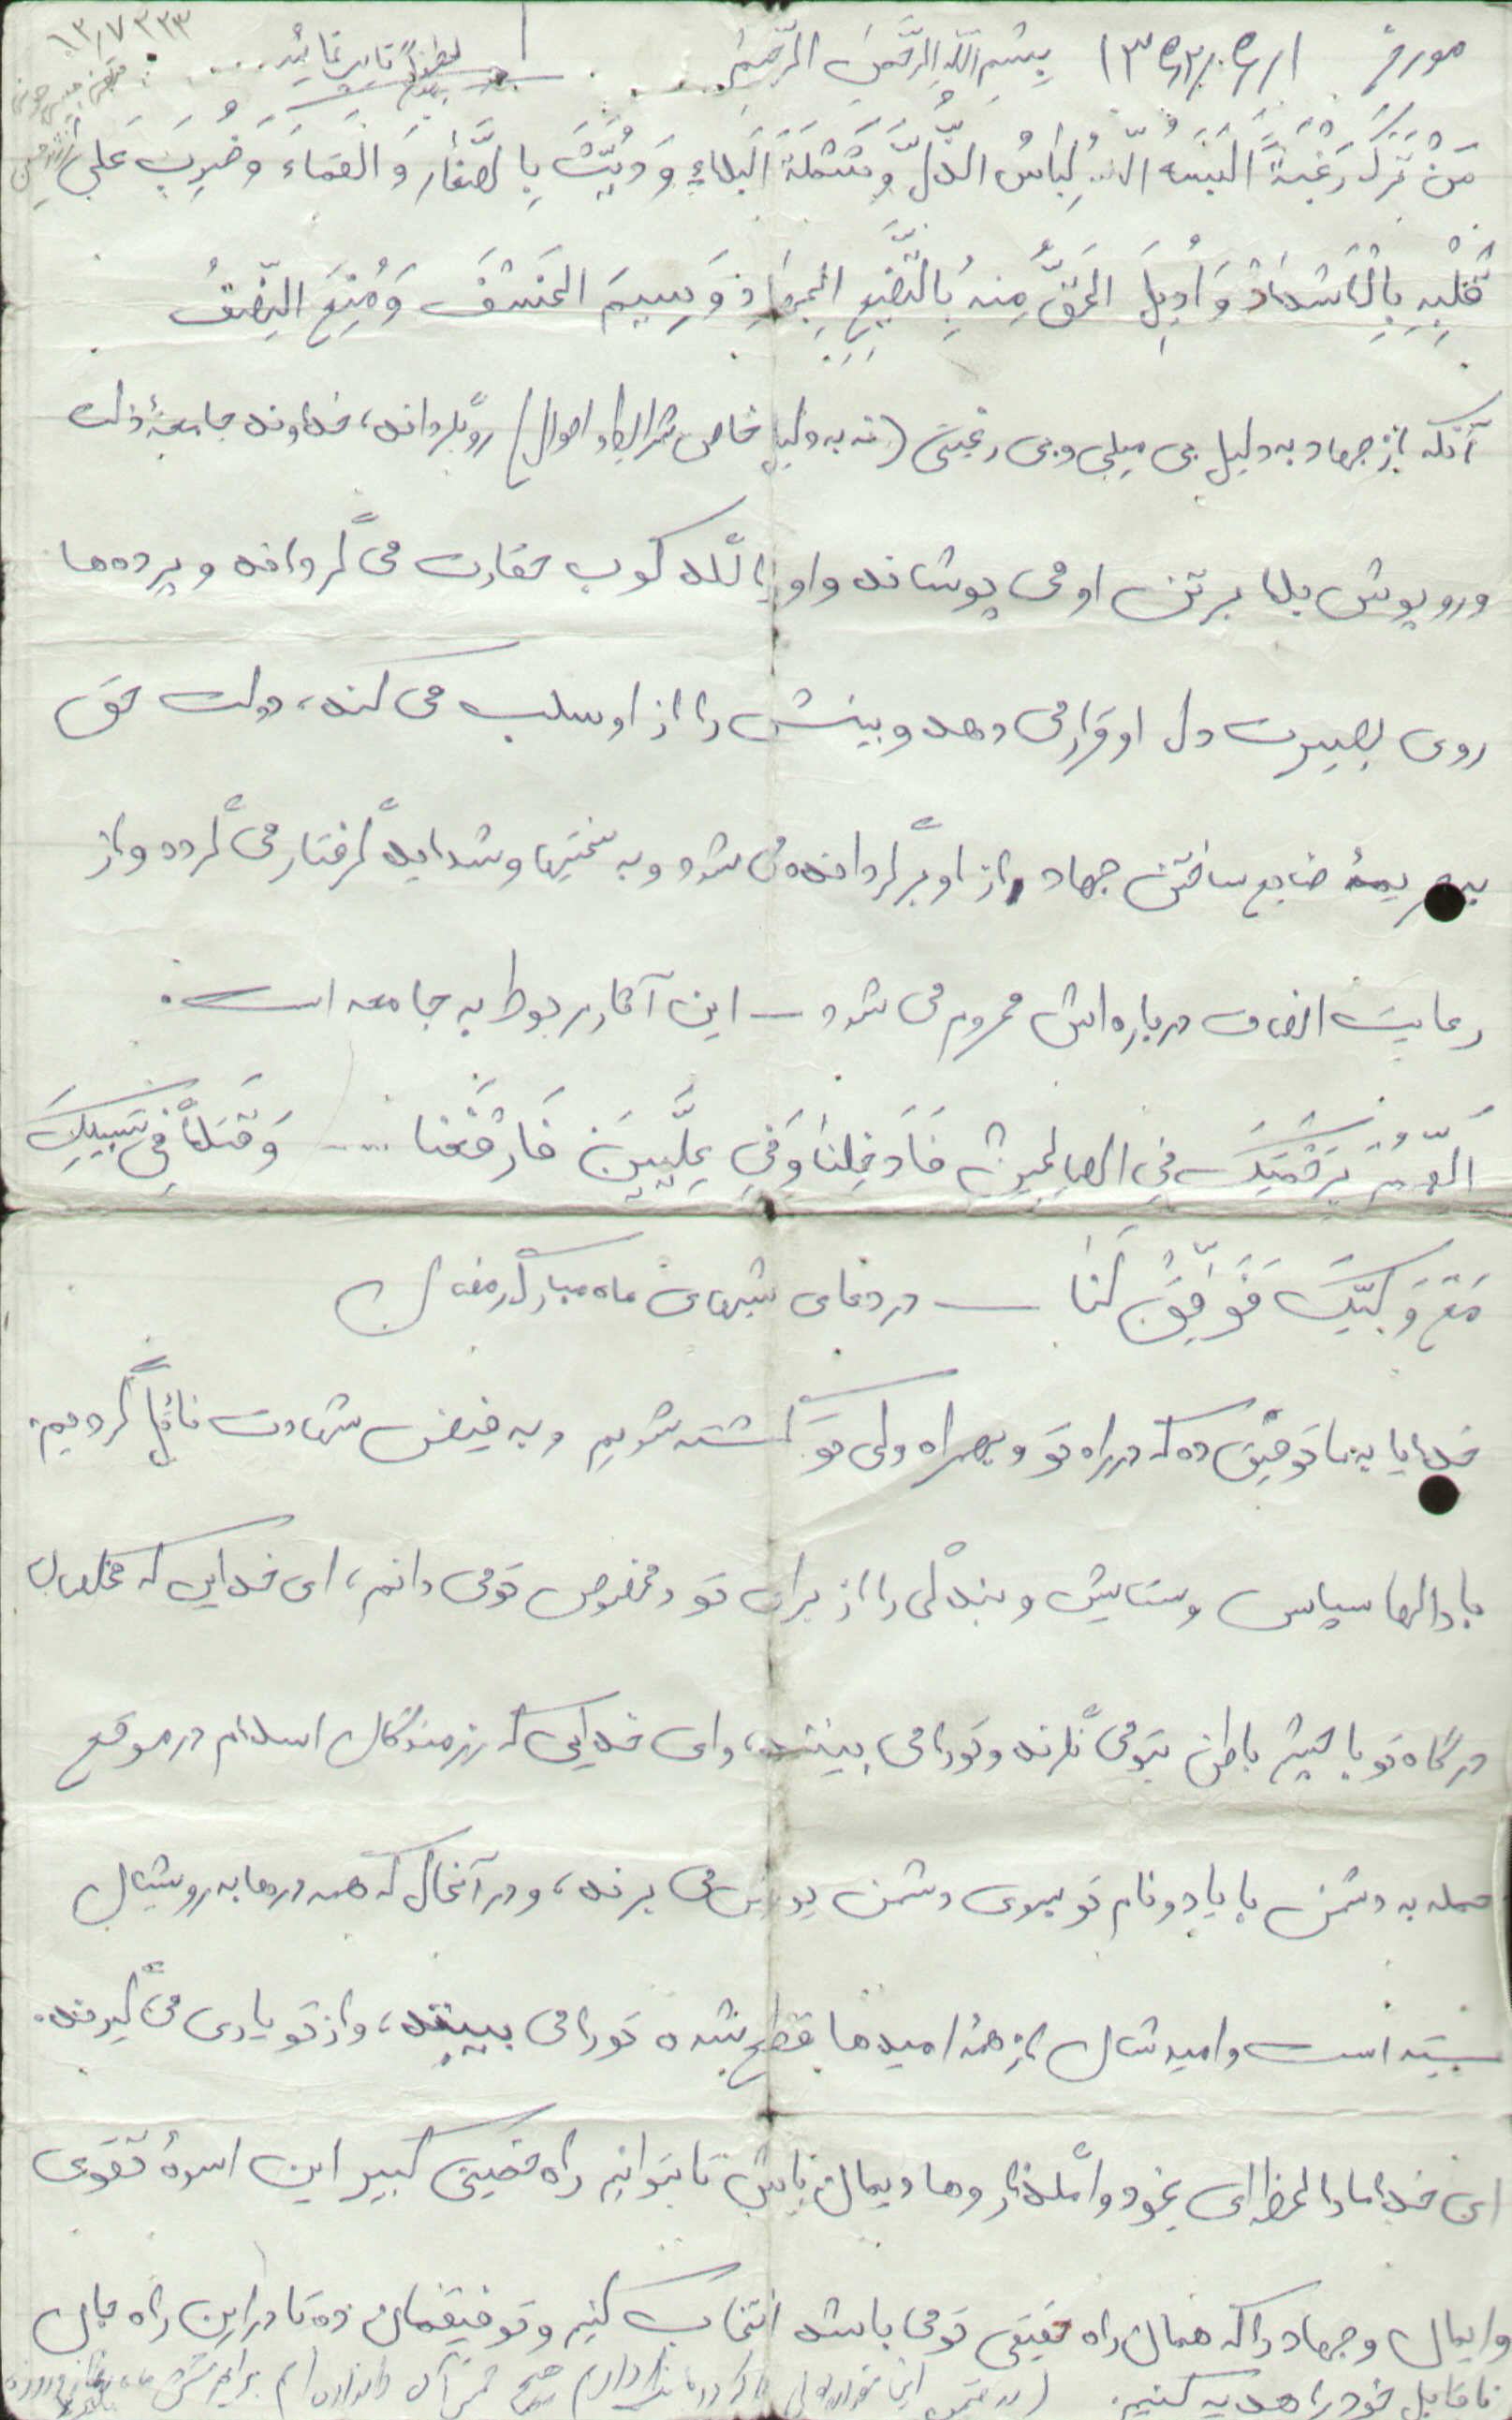 بِسْمِ اللهِ الرَّحْمنِ الرَّحیمْ
مَنْ تَرَکَ رَغْبَةً اَلْبَسَهُ اللهُ لِباسُ الذُّلِّ وَ شَمْلَةَ البَلاءِ وَ دُیِّثَ بِالصَّغارِ وَ القَماءَ وَ ضُرِبَ عَلی
قَلْبِهِ بِالْاَسْدادْ وَ اُدیلَ الحَقُّ مِنهُ بِالتَّضْیِیعِ الجِهادِ وَ سِیمَ الخَسْفَ وَ مُنِعَ النِّصْفُ
آنکه از جهاد به دلیل بی میلی و بی رغبتی (نه به دلیل خاص شرایط و احوال) روگرداند، خداوند جامهٔ ذلت
و روپوش بلا بر تن او می پوشاند و او را لگد کوب حقارت می گرداند و پرده ها
روی بصیرت دل او قرار می دهد و بینش را از او سلب می کند، دولت حق
به جریمهٔ ضایع ساختن جهاد از او برگردانده می شود و به سختیها و شداید گرفتار می گردد و از
رعایت انصاف درباره اش محروم می شود – این آثار مربوط به جامعه است.
اَللّهُمَّ بِرَحْمَتِکَ فِی الصالِحینَ فَاَدْخِلنا وَ فی عِلّیّینَ فَارْفَعْنا .... وَ قَتلاً فی سَبیلِکَ
مَعَ وَلیِّکَ فَوَفِّقْ لَنا – در دعای شبهای ماه مبارک رمضان
خدایا به ما توفیق ده که در راه تو و بهمراه ولی تو کشته شویم و به فیض شهادت نائل گردیم.
بارالها سپاس و ستایش و بندگی را از برای تو و مخصوص تو می دانم، ای خدایی که مخلصان
درگاه تو با چشم باطن بتو می نگرند و تو را می بینند، و ای خدایی که رزمندگان اسلام در موقع
حمله به دشمن با یاد و نام تو بسوی دشمن یورش می برند، و در آنحال که همه درها به رویشان
بسته است و امیدشان از همهٔ امیدها قطع شده تو را می بینند، و از تو یاری می گیرند.
ای خدا ما را لحظه ای بخود وامگذار و هادیمان باش تا بتوانیم راه خمینی کبیر این اسوهٔ تقوی
و ایمان و جهاد را که همان راه حقیقی تو می باشد انتخاب کنیم و توفیقمان ده تا در این راه جان
ناقابل خود را هدیه کنیم.